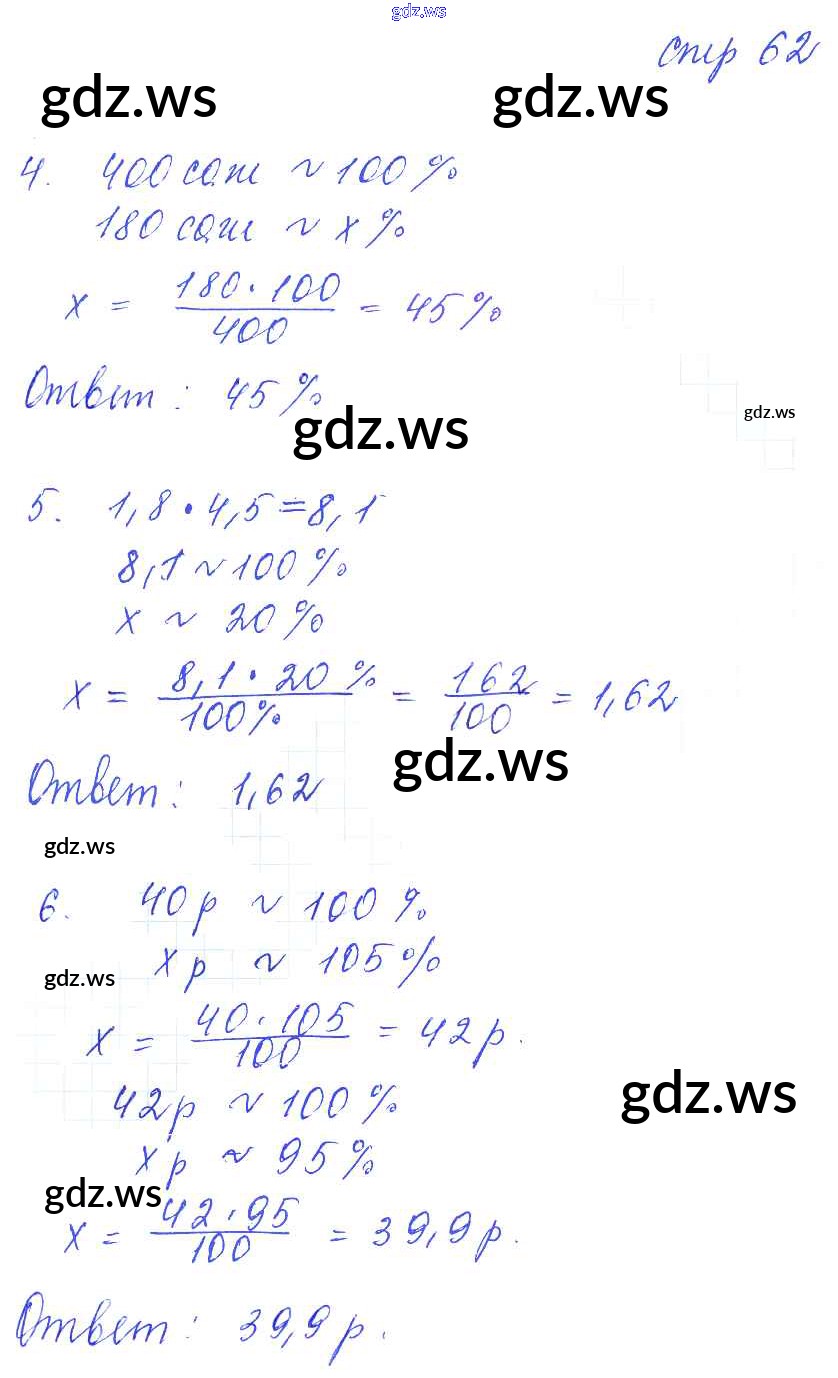 gdz.ws
стр 62
gdz.ws gdz.ws
4. 400 саж ~ 100 %
180 саж ~ x %
x = 180 · 100 / 400 = 45 %
Ответ : 45 %
gdz.ws
gdz.ws
5. 1,8 · 4,5 = 8,1
8,1 ~ 100 %
x ~ 20 %
x = 8,1 · 20 % / 100% = 162 / 100 = 1,62
gdz.ws
Ответ : 1,62
gdz.ws
6. 40 р ~ 100 %
x р ~ 105 %
gdz.ws
x = 40 · 105 / 100 = 42 р.
gdz.ws
42 р ~ 100 %
x р ~ 95 %
gdz.ws
x = 42 · 95 / 100 = 39,9 р.
Ответ : 39,9 р.